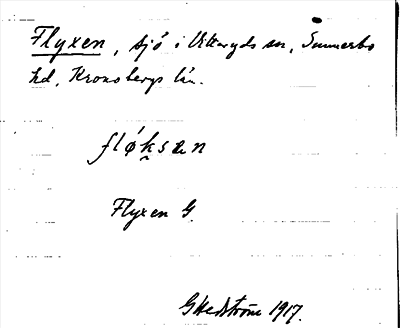 Flyxen, sjö i Vittaryds sn, Sunnerbo
hd, Kronobergs län.
fløksæn
Flyxen G.
G Hedström 1917.